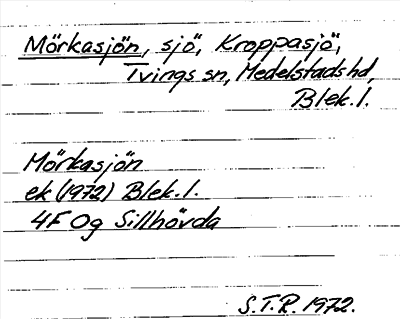 Mörkasjön, sjö, Kroppasjö,
Tvings sn, Medelstads hd,
Blek. l.
Mörkasjön
ek (1972) Blek. l.
4F 0g Sillhövda
S.T.R. 1972.